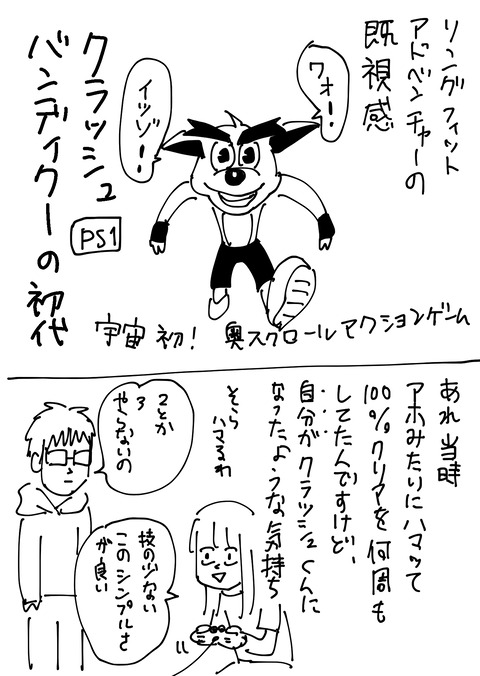 リングフィット
アドベンチャーの
既視感
ワオー!
イッゾー!
クラッシュ
バンディクーの初代
PS1
宇宙初! 奥スクロールアクションゲーム
あれ当時
アホみたいにハマッて
100%クリアを何周も
してたんですけど、
自分がクラッシュくんに
なったような気持ち
そら
ハマるわ
2とか
3
やらないの
技の少ない
このシンプルさ
が良い